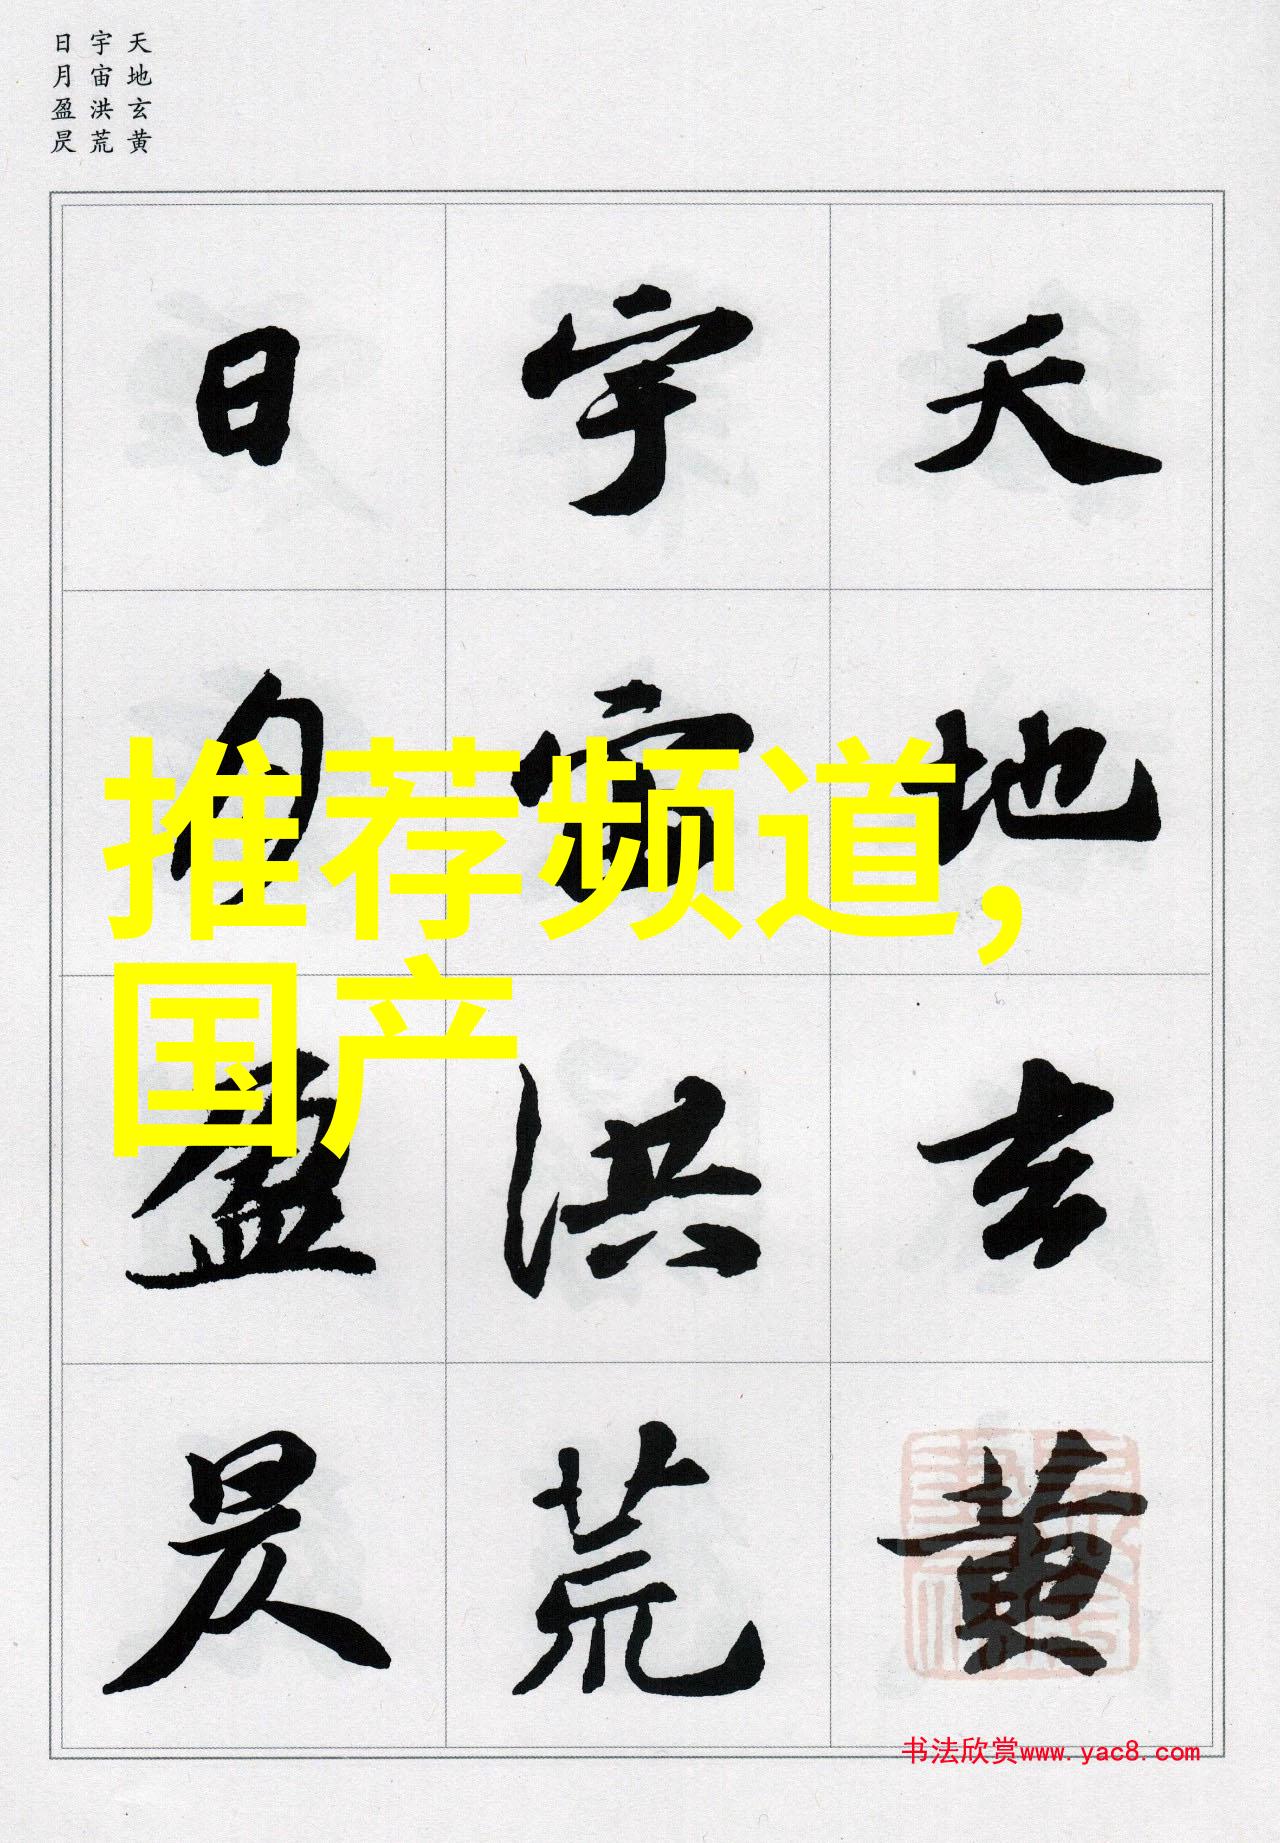 天地玄黄
宇宙洪荒
日月盈昃
天地玄黄
宇宙洪荒
日月盈昃
推荐频道,
国产
书法欣赏www.yac8.com